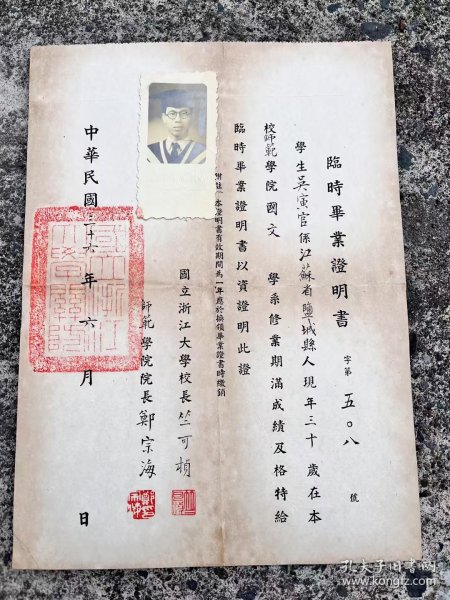 臨時畢業證明書
字第五〇八號
學生吳寅官係江蘇省鹽城縣人現年三十歲在本
校師範學院國文學系修業期滿成績及格特給
臨時畢業證明書以資證明此證
附註 本證明書有效期間為一年應於換領畢業證書時繳銷
國立浙江大學校長竺可楨
師範學院院長鄭宗海
中華民國三十六年六月 日
孔夫子旧书网
www.kongfz.com